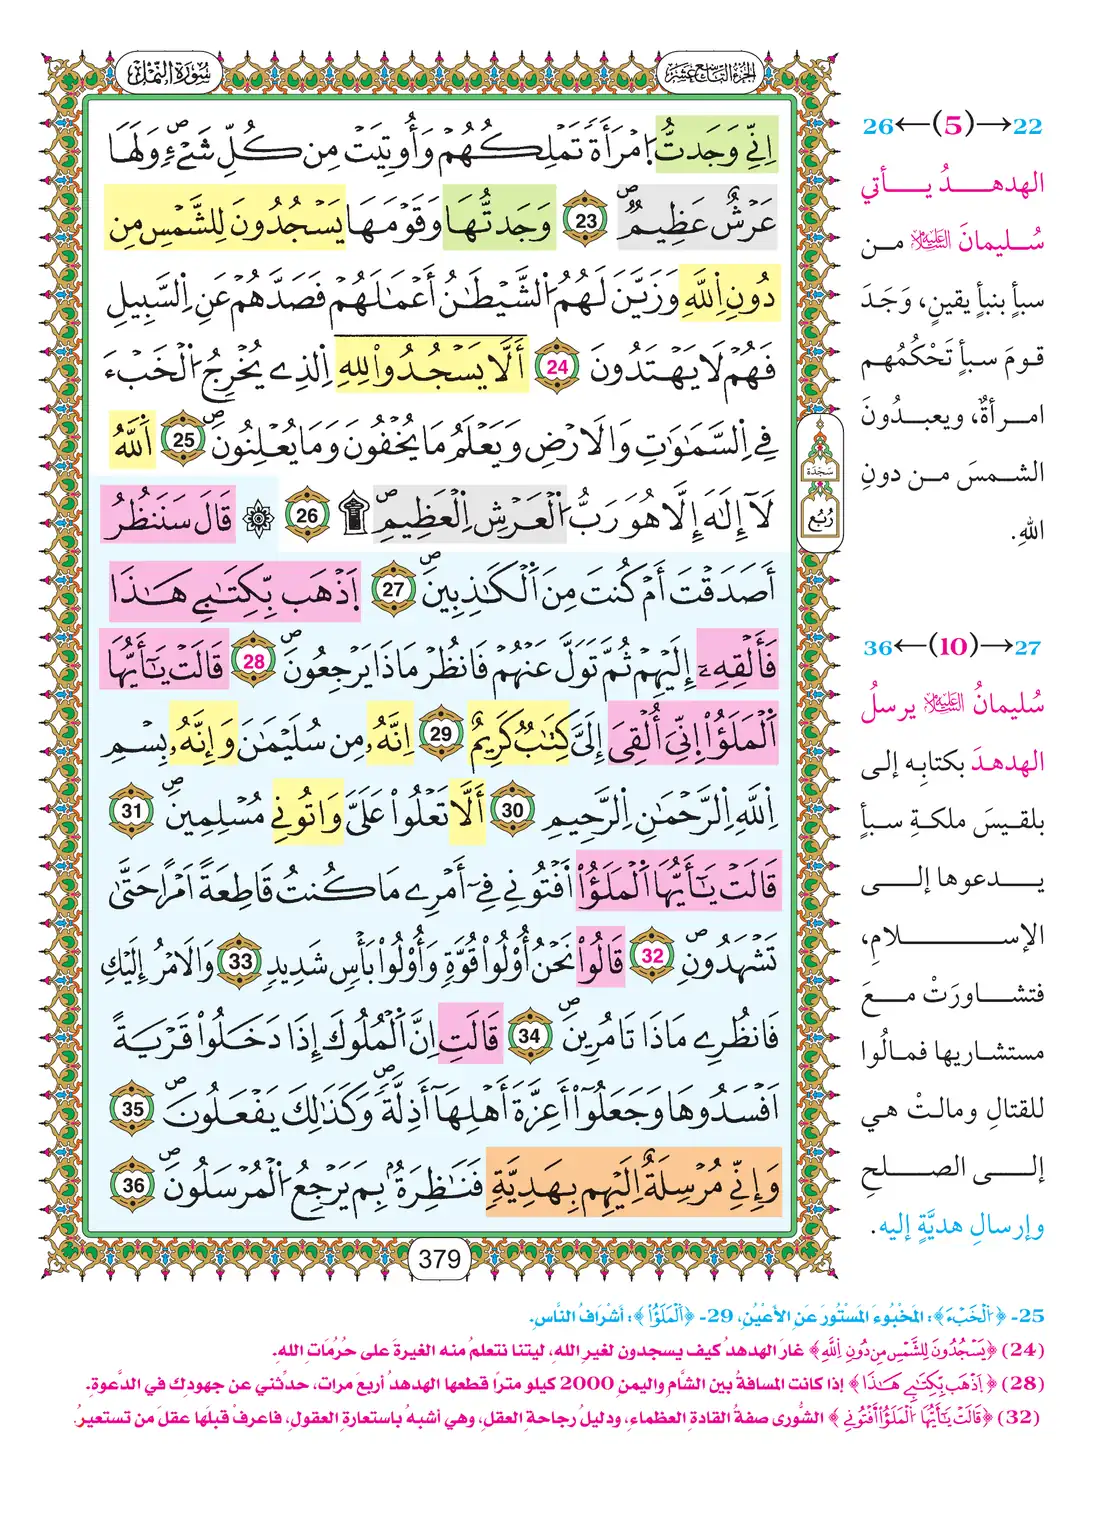 الجزء التاسع عشر
سورة النمل
اِنِّي وَجَدتُّ اُ۪مْرَأَةٗ تَمْلِكُهُمْ وَأُوتِيَتْ مِن كُلِّ شَےْءٖ وَلَهَا
عَرْشٌ عَظِيمٞۖ 23 وَجَدتُّهَا وَقَوْمَهَا يَسْجُدُونَ لِلشَّمْسِ مِن
دُونِ اِ۬للَّهِ وَزَيَّنَ لَهُمُ اُ۬لشَّيْطَٰنُ أَعْمَٰلَهُمْ فَصَدَّهُمْ عَنِ اِ۬لسَّبِيلِ
فَهُمْ لَا يَهْتَدُونَ 24 أَلَّا يَسْجُدُواْ لِلهِ اِ۬لذِے يُخْرِجُ اُ۬لْخَبْءَ
فِے اِ۬لسَّمَٰوَٰتِ وَالَارْضِ وَيَعْلَمُ مَا يُخْفُونَ وَمَا يُعْلِنُونَۖ 25 اَ۬للَّهُ
لَآ إِلَٰهَ إِلَّا هُوَ رَبُّ اُ۬لْعَرْشِ اِ۬لْعَظِيمِۖ ۩ 26 ۞ قَالَ سَنَنظُرُ
أَصَدَقْتَ أَمْ كُنتَ مِنَ اَ۬لْكَٰذِبِينَۖ 27 اَ۪ذْهَب بِّكِتَٰبِے هَٰذَا
فَأَلْقِهِۦٓ إِلَيْهِمْ ثُمَّ تَوَلَّ عَنْهُمْ فَانظُرْ مَاذَا يَرْجِعُونَۖ 28 قَالَتْ يَٰٓأَيُّهَا
اَ۬لْمَلَؤُاْ اِنِّيَ أُلْقِيَ إِلَيَّ كِتَٰبٞ كَرِيمٌ 29 اِنَّهُۥ مِن سُلَيْمَٰنَ وَإِنَّهُۥ بِسْمِ
اِ۬للَّهِ اِ۬لرَّحْمَٰنِ اِ۬لرَّحِيمِ 30 أَلَّا تَعْلُواْ عَلَيَّ وَاتُونِے مُسْلِمِينَۖ 31
قَالَتْ يَٰٓأَيُّهَا اَ۬لْمَلَؤُاْ اَفْتُونِے فِےٓ أَمْرِے مَا كُنتُ قَاطِعَةً اَمْراً حَتَّىٰ
تَشْهَدُونِۖ 32 قَالُواْ نَحْنُ أُوْلُواْ قُوَّةٖ وَأُوْلُواْ بَأْسٖ شَدِيدٖ 33 وَالَامْرُ إِلَيْكِ
فَانظُرِے مَاذَا تَامُرِينَۖ 34 قَالَتِ اِنَّ اَ۬لْمُلُوكَ إِذَا دَخَلُواْ قَرْيَةً
اَفْسَدُوهَا وَجَعَلُوٓاْ أَعِزَّةَ أَهْلِهَآ أَذِلَّةٗۖ وَكَذَٰلِكَ يَفْعَلُونَۖ 35
وَإِنِّے مُرْسِلَةٌ اِلَيْهِم بِهَدِيَّةٖ فَنَاظِرَةُۢ بِمَ يَرْجِعُ اُ۬لْمُرْسَلُونَۖ 36
379
سَجْدَة
رُبُع
22→(5)←26
الهدهدُ يأتي
سُليمانَ عليه السلام من
سبأٍ بنبأٍ يقينٍ، وَجَدَ
قومَ سبأٍ تَحْكُمُهُم
امرأةٌ، ويعبدُونَ
الشمسَ من دونِ
اللهِ.
27→(10)←36
سُليمانُ عليه السلام يرسلُ
الهدهدَ بكتابِه إلى
بلقيسَ ملكةِ سبأٍ
يدعوها إلى
الإسلامِ،
فتشاورَتْ معَ
مستشاريها فمالُوا
للقتالِ ومالتْ هي
إلى الصلحِ
وإرسالِ هديَّةٍ إليه.
25- ﴿اُ۬لْخَبْءَ﴾: المَخْبُوءَ المَسْتُورَ عَنِ الأَعْيُنِ، 29- ﴿اَ۬لْمَلَؤُاْ﴾: أَشْرَافُ النَّاسِ.
(24) ﴿يَسْجُدُونَ لِلشَّمْسِ مِن دُونِ اِ۬للَّهِ﴾ غارَ الهدهدُ كيف يسجدون لغيرِ اللهِ، ليتنا نتعلمُ منه الغيرةَ على حُرُمَاتِ اللهِ.
(28) ﴿اَ۪ذْهَب بِّكِتَٰبِے هَٰذَا﴾ إذا كانت المسافةُ بين الشَّام واليمنِ 2000 كيلو مترًا قطعها الهدهدُ أربعَ مرات، حدِّثني عن جهودِك في الدَّعوةِ.
(32) ﴿قَالَتْ يَٰٓأَيُّهَا اَ۬لْمَلَؤُاْ اَفْتُونِے﴾ الشُّورى صفةُ القادةِ العظماءِ، ودليلُ رجاحةِ العقلِ، وهي أشبهُ باستعارةِ العقولِ، فاعرفْ قبلَها عقلَ من تستعيرُ.